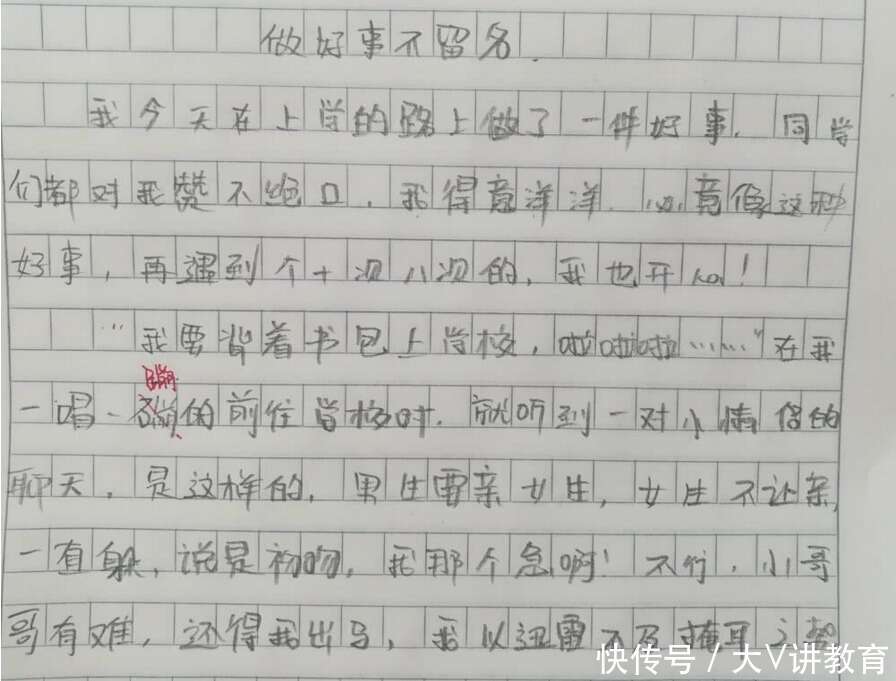 做好事不留名
我今天在上学的路上做了一件好事.同学
们都对我赞不绝口,我得意洋洋.必竟像这种
好事,再遇到个十次八次的,我也开心!
“我要背着书包上学校,啦啦啦……”在我
蹦
一唱一蹦的前往学校时.就听到一对小情侣的
聊天,是这样的,男生要亲女生,女生不让亲,
一直躲,说是初吻,我那个急啊!不行,小哥
哥有难,还得我出马,我以迅雷不及掩耳之势
快传号 / 大V讲教育